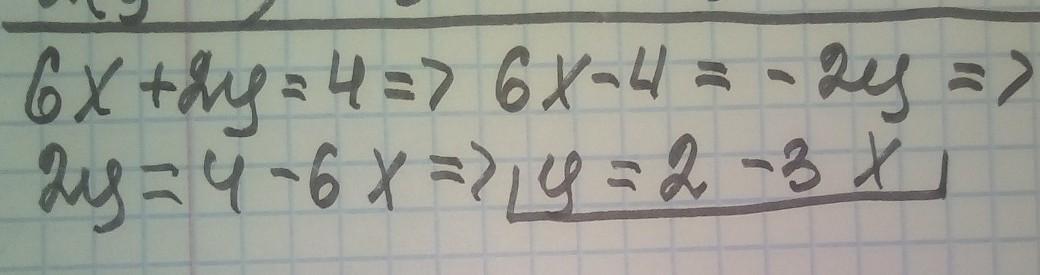 6x+2y=4=> 6x-4=-2y=>
2y=4-6x=> y=2-3x